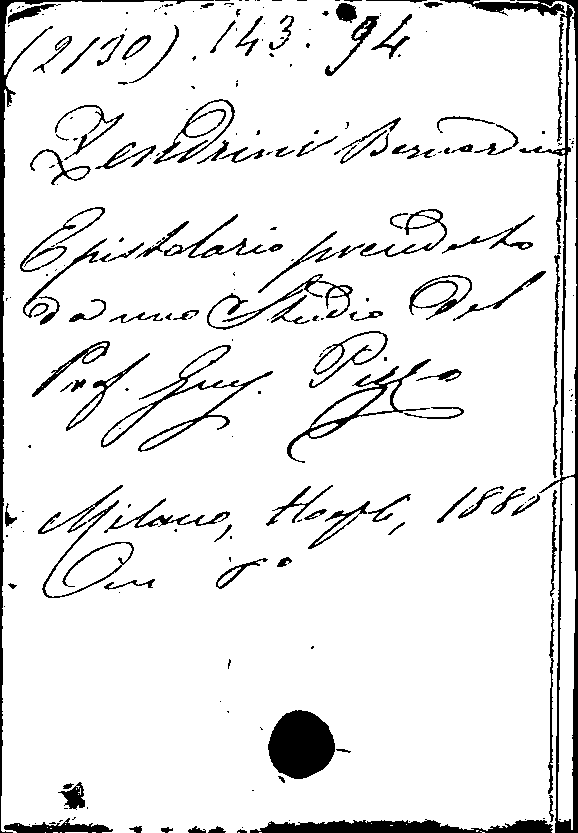 (2130). 143. 94
Zendrini Bernardino
Epistolario preceduto
da uno Studio del
Prof. Gius. Pizzo
Milano, Hoepli, 1886
in 8°